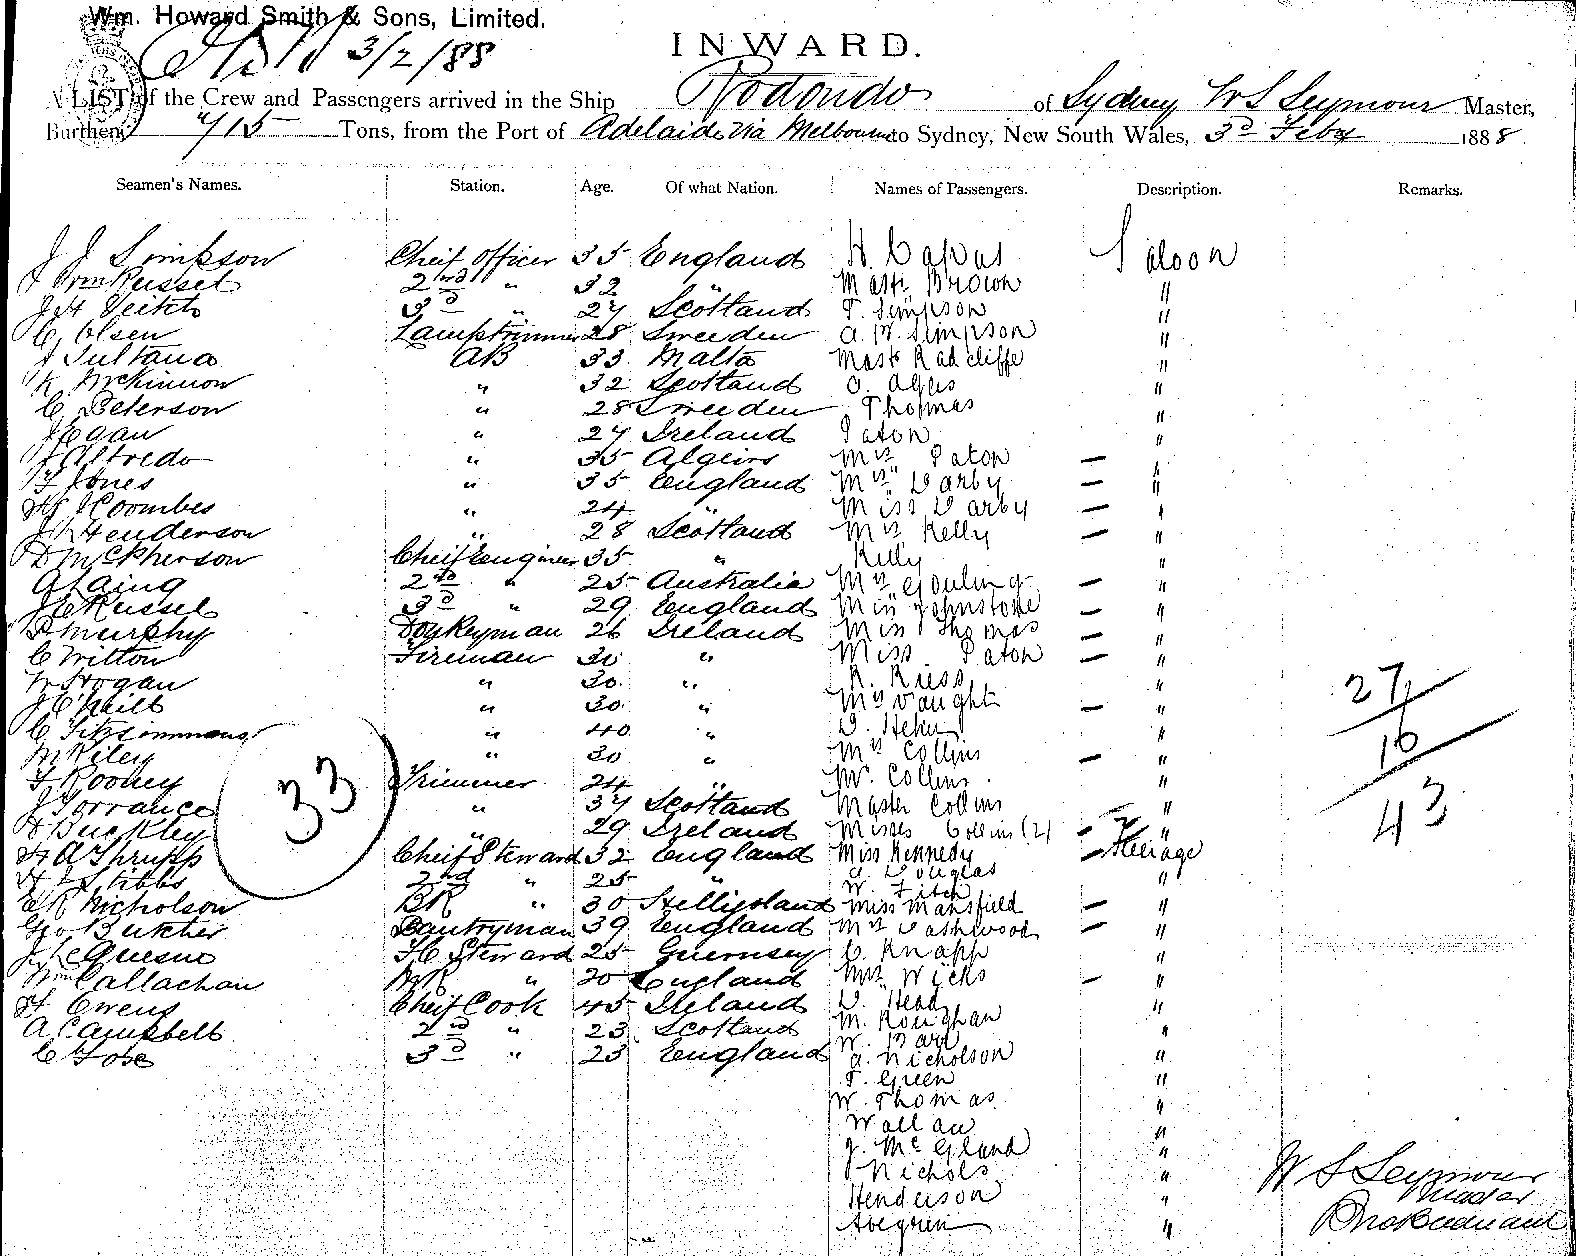 Wm. Howard Smith & Sons, Limited.
3/2/88
INWARD.
A LIST of the Crew and Passengers arrived in the Ship Rodondo of Sydney W S Seymour Master,
Burthen 715 Tons, from the Port of Adelaide via Melbourne to Sydney, New South Wales, 3d Feby 1888
Seamen's Names. Station. Age. Of what Nation. Names of Passengers. Description. Remarks.
J J Simpson Cheif Officer 35 England H. Capus Saloon
J Wm Russel 2nd " 32 " Mastr Brown "
J H Veitch 3d " 27 Scotland T. Simpson "
C Olsen Lamptrimmer 28 Sweeden A. W. Simpson "
J Sultana AB 33 Malta Mastr Radcliffe "
K McKinnon " 32 Scotland O. Algis "
C Peterson " 28 Sweeden Thomas "
J Egan " 27 Ireland Paton "
J Alfredo " 35 Algeirs Mrs Paton — "
T Jones " 35 England Mrs Darby — "
H J Coombes " 24 " Miss Darby — "
J K Henderson " 28 Scotland Mrs Kelly — "
D McPherson Cheif Engineer 35 " Kelly "
A Laing 2nd " 25 Australia Mrs Gouling — "
J C Russel 3d " 29 England Miss Johnstone — "
P Murphy Donkeyman 26 Ireland Miss Thomas — "
C Witton Fireman 30 " Miss Paton — "
W Hogan " 30 " R. Riess "
J O'Neill " 30 " Mrs Vaught — "
C Fitzsimmons " 40 " D. Hehir "
M Riley " 30 " Mrs Collins — "
J Rooney Trimmer 24 " Mr. Collins "
J Torrance " 37 Scotland Master Collins "
H Buckley " 29 Ireland Misses Collins (2) — "
H A Thrupp Cheif Steward 32 England Miss Kennedy — Steerage
H J Stibbs 2nd " 25 " A. Douglas "
W. Fitch
C R Nicholson BR " 30 Helligoland Miss Mansfield — "
Geo Butcher Pantryman 39 England Mrs Dashwood — "
J Le Quesne FC Steward 25 Guernsey C. Knapp "
Wm Callachan MR " 20 England Mrs Wicks — "
H Owens Cheif Cook 45 Ireland D. Head "
M. Roughan
A Campbell 2nd " 23 Scotland W. Bart "
C Fose 3d " 23 England A. Nicholson "
T. Green "
W. Thomas "
Wallace "
J. McGland "
Nichols "
Henderson "
"
33
27
16
43
W S Seymour
Master